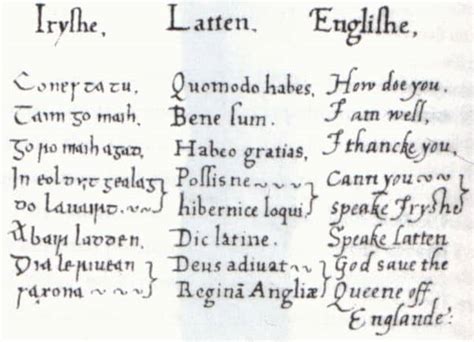 Iryshe, Latten. Englishe,
Cones ta tu, Quomodo habes, How doe you.
Taim go maih Bene sum. I am well,
Go ro maih agad, Habeo gratias, I thancke you.
In eol dut gealag Possisne Cann you
do lauairt. hibernice loqui speake Iryshe
Abair ladden, Dic latine. Speake Latten
Dia le riuean Deus adiuat God save the
saxona Reginā Angliæ Queene off
Englande: